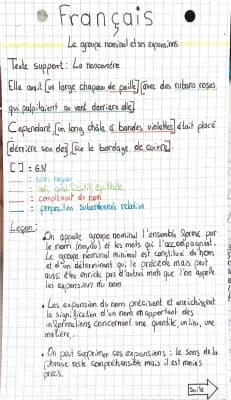 Français
Le groupe nominal et ses expansions
Texte support: La rencontre
Elle avait [un large chapeau de paille] [avec des rubans roses
qui palpitaient au vent derrière elle]
Cependant, [un long châle à bandes violettes] était placé
[derrière son dos] [sur le bordage de cuivre].
[ ] = G.N
= nom noyau
= adj qualificatif épithète
= complément du nom
= proposition subordonnée relative
Leçon:
On appelle groupe nominal l'ensemble formé par
le nom (noyau) et les mots qui l'accompagnent.
Le groupe nominal minimal est constitué du nom
et d'un déterminant qui le précède mais peut
aussi être enrichi par d'autres mots que l'on appelle
les expansions du nom
• Les expansions du nom précisent et enrichissent
la signification d'un nom en apportant des
informations concernant une quantité, un lieu, une
matière...
• On peut supprimer ces expansions : le sens de la
phrase reste compréhensible mais il est moins
précis.
Suite